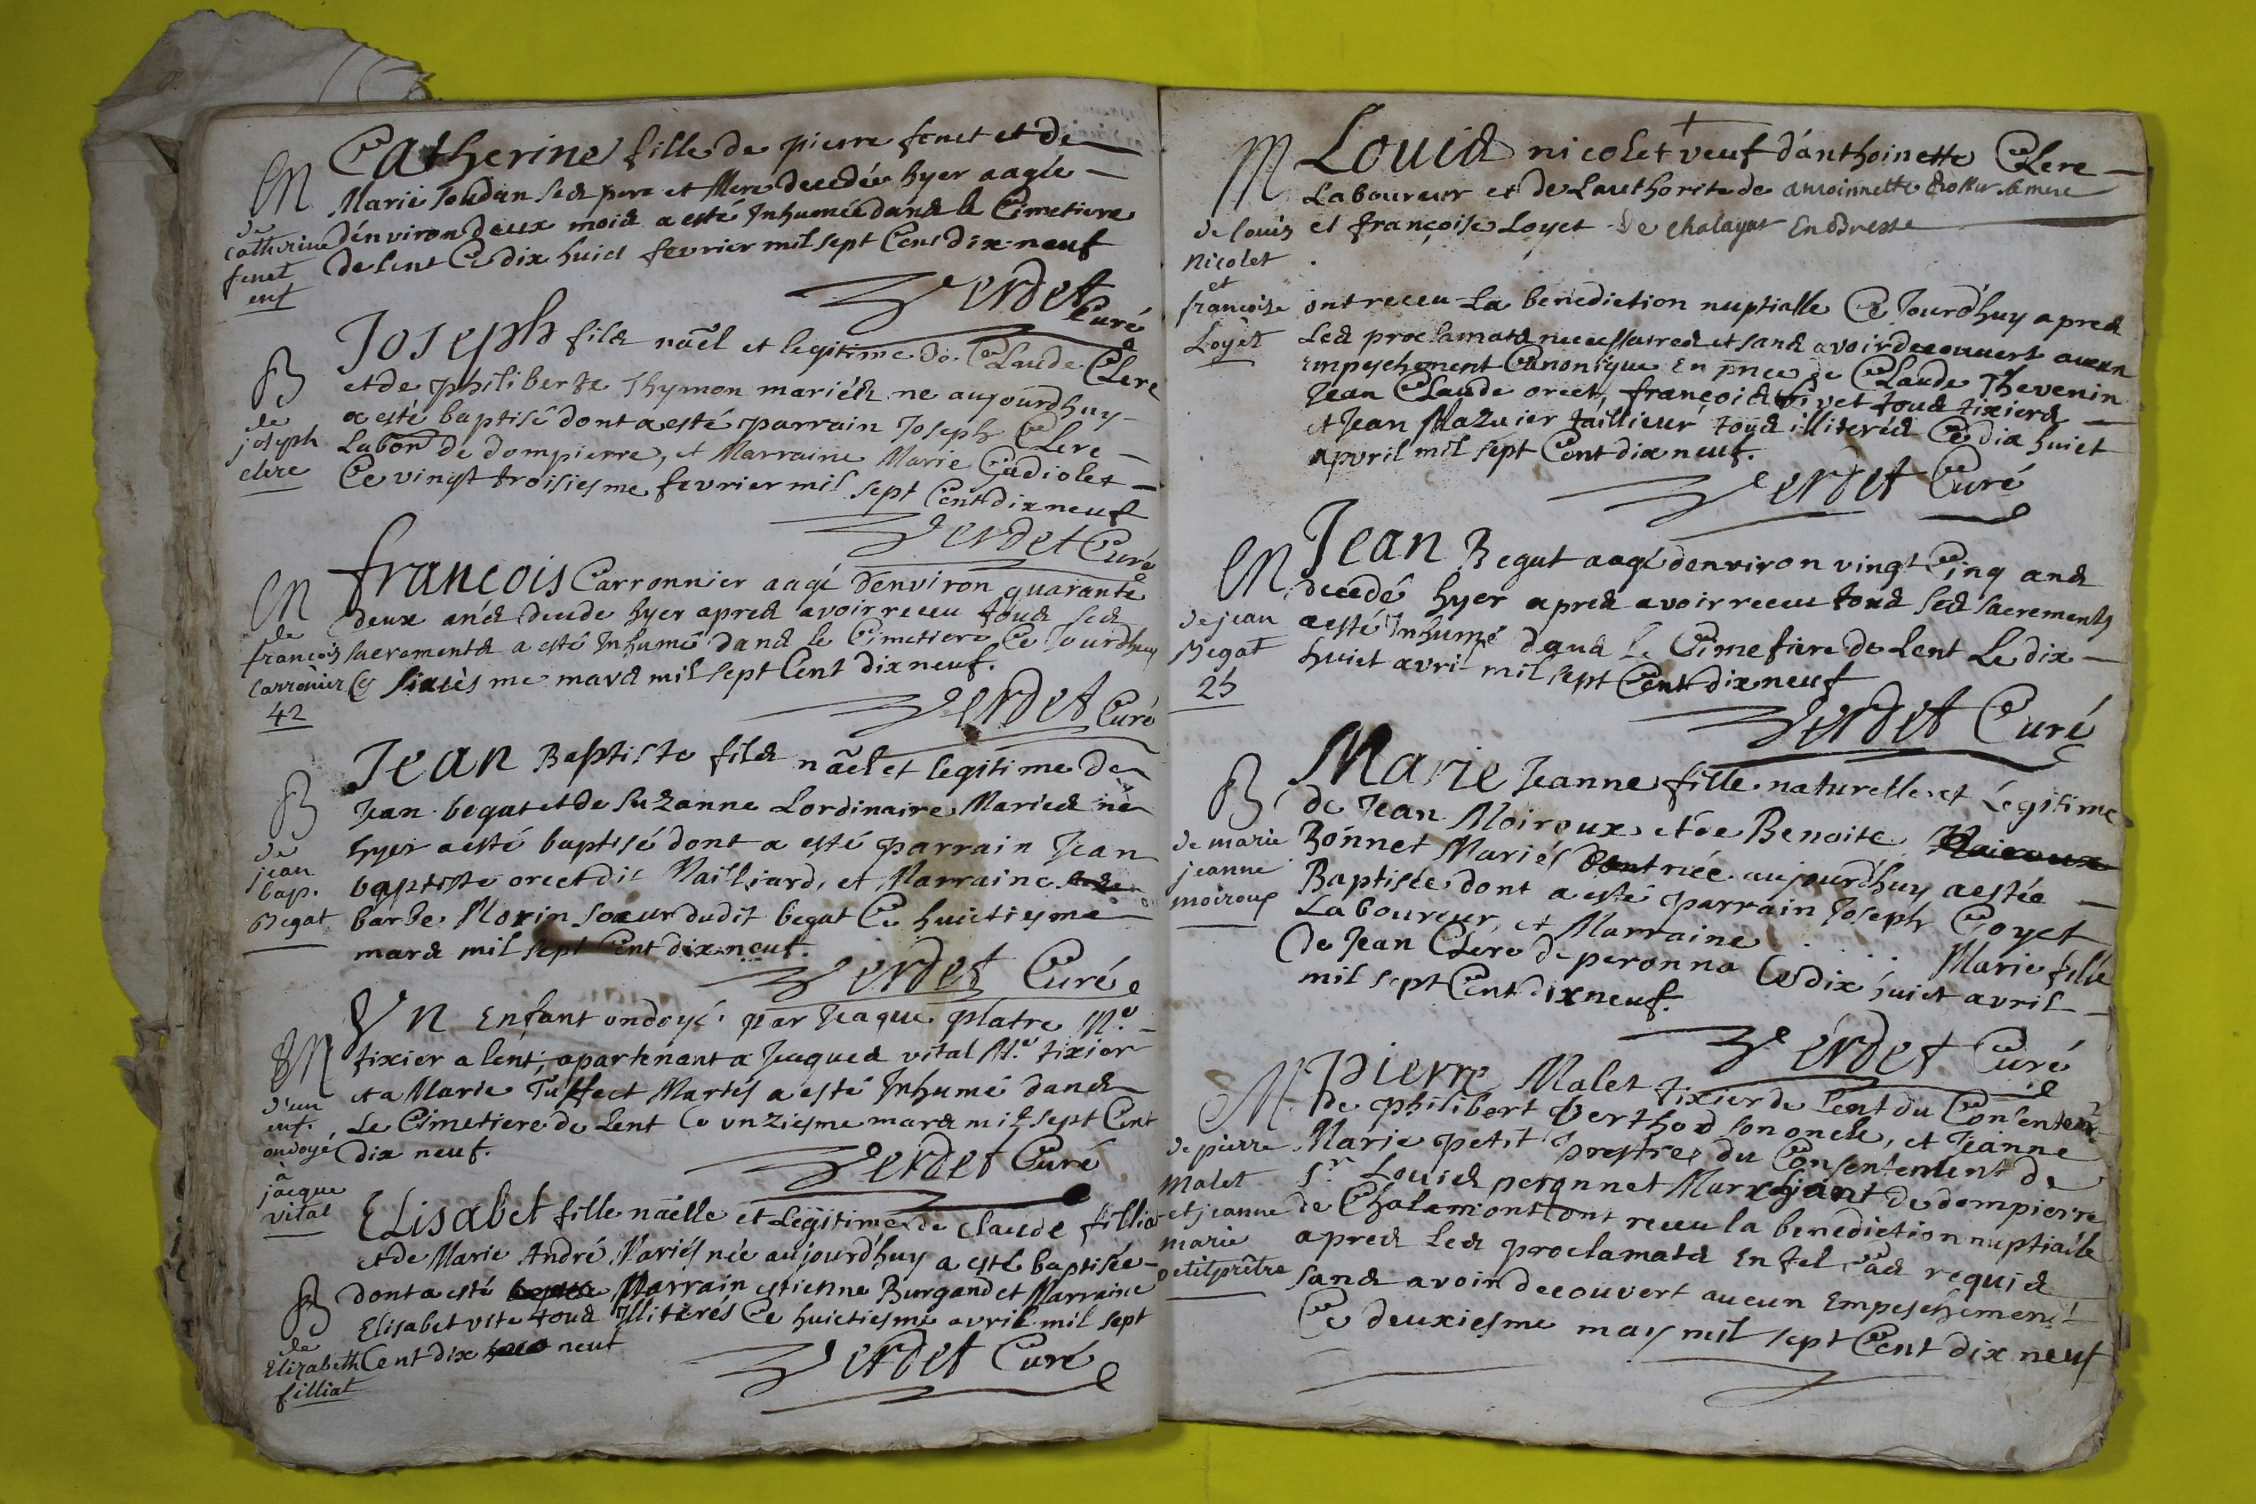 Catherine fille de pierre fenet et de
Marie Joudan ses pere et Mere decedée hyer aagée
d'environ deux mois a esté Inhumée dans le Cimetiere
de lent Ce dix huict fevrier mil sept Cent dix neuf
Verdet Curé
M
de
catherine
fenet
enf
Joseph fils nãel et legitime de Claude Clere
et de philiberte Thymon mariés ne aujourdhuy
a esté baptisé dont a esté parrain Joseph Clere
Labor de dompierre, et Marraine Marie Gudiolet
Ce vingt troisiesme fevrier mil sept Cent dix neuf
Verdet Curé
B
de
joseph
clere
francois Carronnier aagé d'environ quarante
deux ans decede hyer apres avoir receu tous ses
sacrements a esté Inhumé dans le Cimetiere Ce Jourdhuy
Ce sixiès me mars mil sept Cent dix neuf.
Verdet Curé
M
de
francois
Carronier
42
Jean Baptiste fils nãel et legitime de
Jean begat et de Suzanne Lordinaire Mariés né
hyer a esté baptisé dont a esté parrain Jean
baptiste orcet dit Vailliard, et Marraine
barbe Morin soeur dudit begat Ce huictiesme
mars mil sept Cent dix neuf.
Verdet Curé
B
de
jean
bap.
Begat
Vn Enfant ondoyé par Jaque platre M.e
tixier a lent, apartenant a Jaques vital M.e tixier
et a Marie Tuffet Mariés a esté Inhumé dans
Le Cimetiere de Lent Ce unziesme mars mil sept Cent
dix neuf.
Verdet Curé
M
d'un
enf.
ondoyé
à
jacque
vital
Elisabet fille nãelle et Legitime de Claude fillia
et de Marie André Mariés née aujourdhuy a esté baptisée
dont a esté Parrain estienne Burgand et Marraine
Elisabet vste tous Illiterés Ce huictiesme avril mil sept
Cent dix neuf
Verdet Curé
B
de
Elizabeth
filliat
Louis nicolet veuf d'anthoinette Clere
Laboureur et de Lauthorite de antoinnette sa mere
et françoise Loyet de chalayat En bresse
ont receu La benediction nuptialle Ce Jourdhuy apres
Les proclamats necessaires et sans avoir decouvert aucun
Empeschement Canonique En pñce de Claude Thevenin
Jean Claude orcet, françois vivet tous tixiers
et Jean Mazuier taillieur tous illiterés Ce dix huict
apvril mil sept Cent dix neuf.
Verdet Curé
M
de louis
Nicolet
et
francoise
Loyet
Jean Begat aagé denviron vingt Cinq ans
decedé hyer apres avoir receu tous ses sacrements
a esté Inhumé dans le Cimetiere de Lent Le dix
huict avril mil sept Cent dix neuf
Verdet Curé
M
de jean
Begat
25
Marie Jeanne fille naturelle et Légitime
de Jean Moiroux et de Benoite
Bonnet Mariés née aujourdhuy a estée
Baptisée dont a esté parrain Joseph Goyet
Laboureur, et Marraine . . . Marie fille
de Jean Clere de peronna Ce dix huict avril
mil sept Cent dix neuf.
Verdet Curé
B
de marie
jeanne
moiroux
Pierre Malet tixier de Lent du Consentemt
de philibert Berthod son oncle, et Jeanne
Marie petit prestre du Consentement de
Sr Louis peronnet Marchant de dompierre
de Chalamont ont receu la benediction nuptialle
apres Les proclamats En tel Cas requis
sans avoir decouvert aucun Empeschement
Ce deuxiesme may mil sept Cent dix neuf
M
de pierre
Malet
et jeanne
marie
petitprêtre